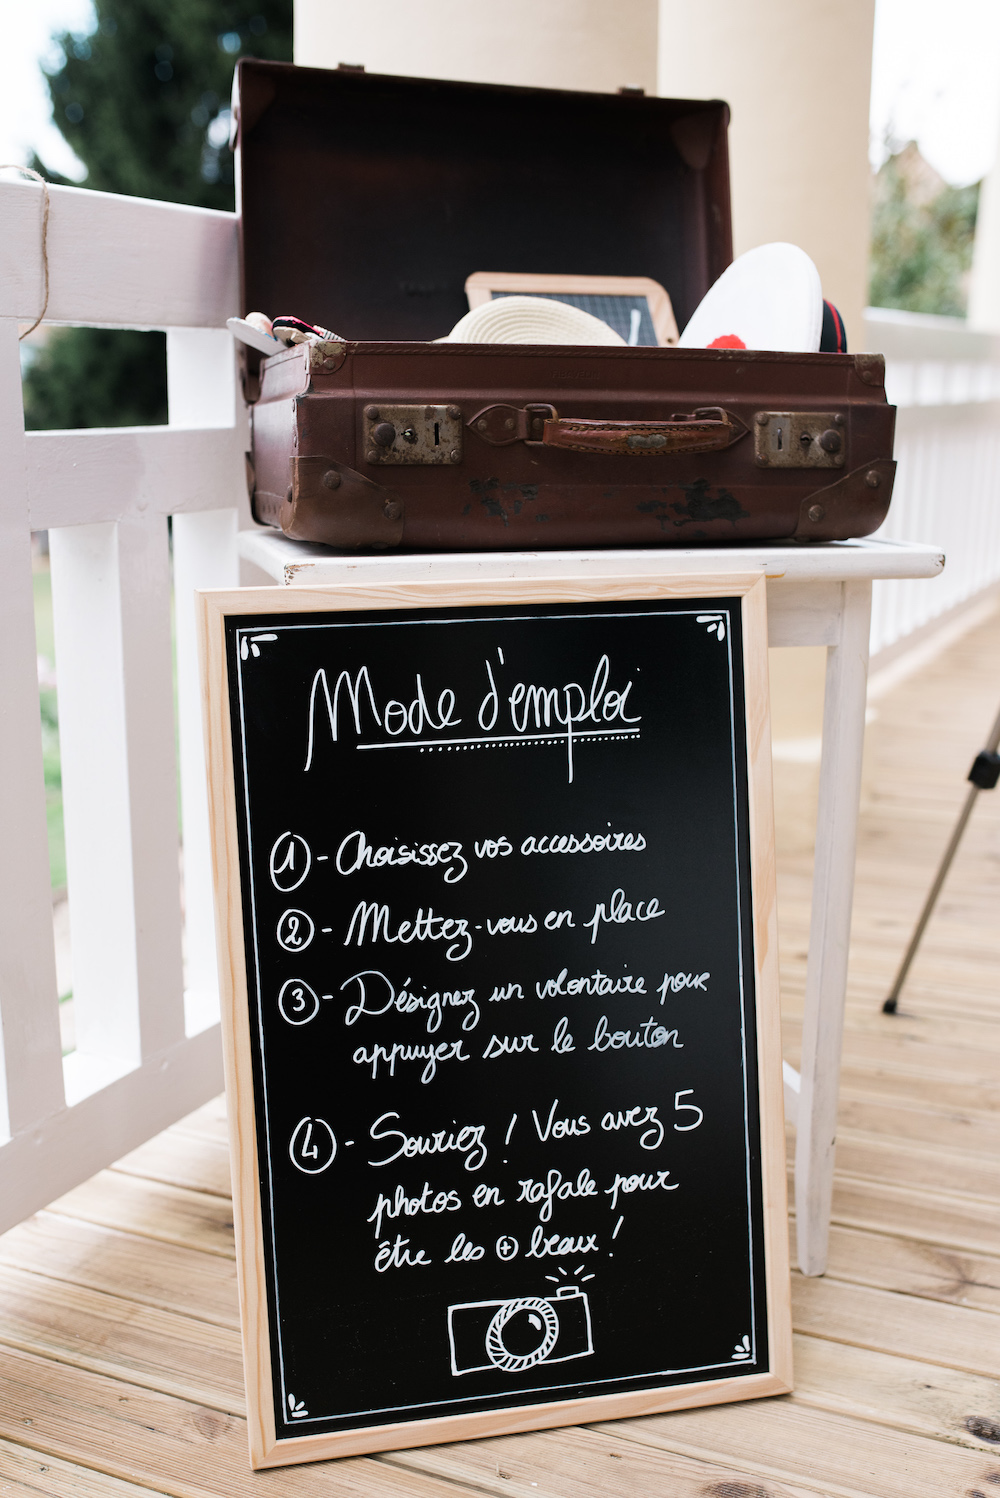 Mode d'emploi
1 - Choisissez vos accessoires
2 - Mettez-vous en place
3 - Désignez un volontaire pour
appuyer sur le bouton
4 - Souriez ! Vous avez 5
photos en rafale pour
être les + beaux !